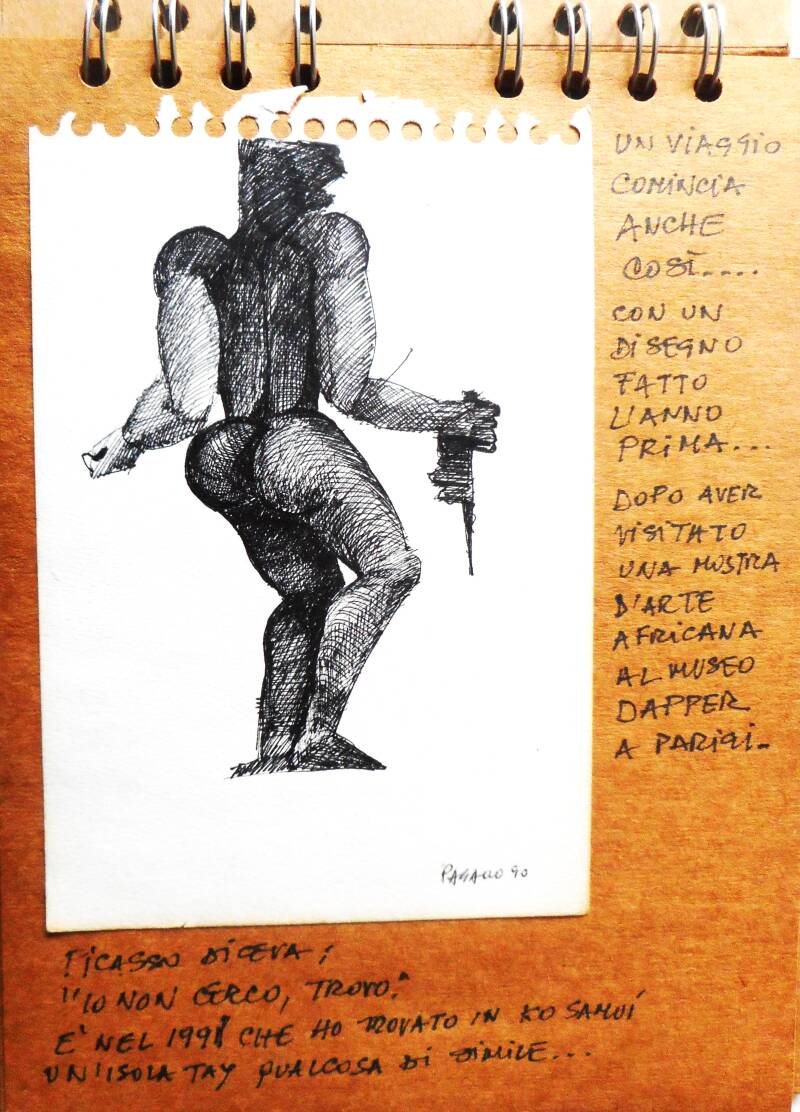 UN VIAGGIO
COMINCIA
ANCHE
COSÌ....
CON UN
DISEGNO
FATTO
L'ANNO
PRIMA...
DOPO AVER
VISITATO
UNA MOSTRA
D'ARTE
AFRICANA
AL MUSEO
DAPPER
A PARIGI_
PAGANO 90
PICASSO DICEVA;
"IO NON CERCO, TROVO."
E' NEL 1991 CHE HO TROVATO IN KO SAMUI
UN'ISOLA TAY QUALCOSA DI SIMILE...